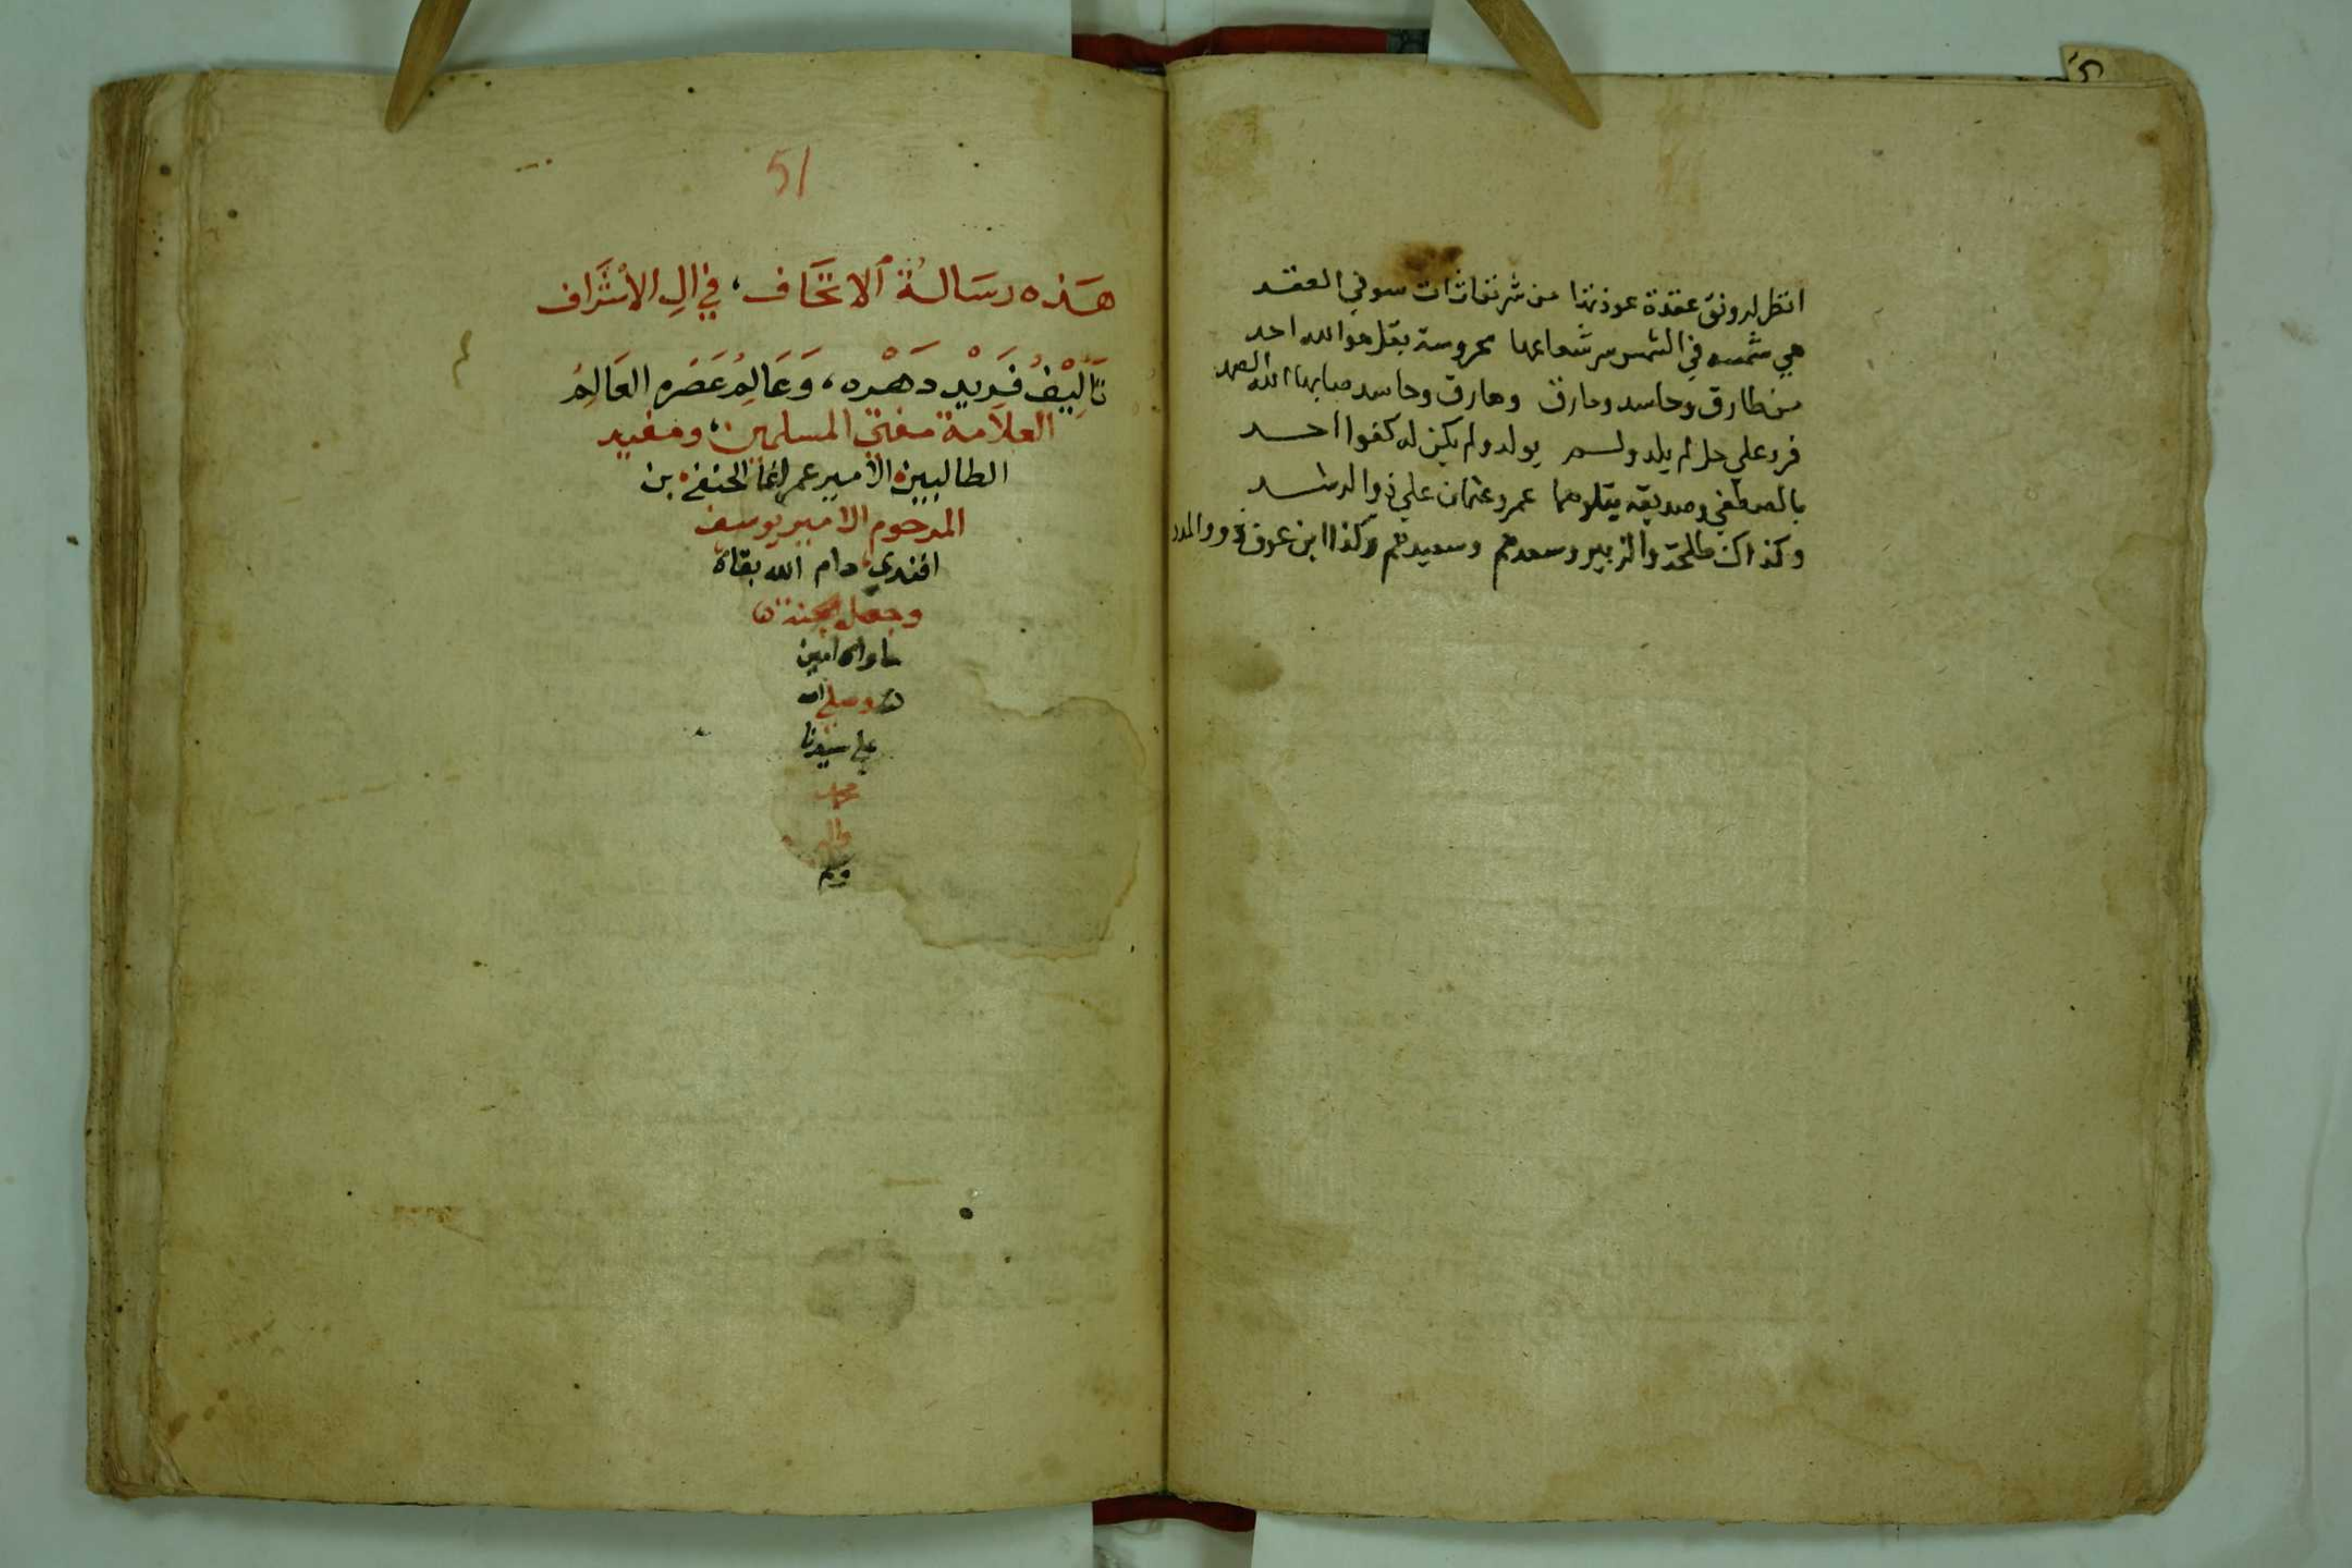 انظر لرونق عقدة عوذتها من شر نفاثات سو في العقد
هي شمسه في الشمس سر شعاعها محروسة بقل هو الله احد
من طارق وحاسد ومارق وحاسد الله الصمد
فرد علي جل لم يلد ولم يولد ولم يكن له كفوا احد
بالمصطفي وصديقه يتلوهما عمر وعثمان علي ذو الرشد
وكذاك طلحة والزبير وسعدهم وسعيدهم وكذا ابن عوف
51
هذه رسالة الاتحاف، في ال الاشراف
تاليف فريد دهره، وعالم عصره العالم
العلامة مفتي المسلمين، ومفيد
الطالبين الامير عمر اغا الحنفي بن
المرحوم الامير يوسف
افندي دام الله بقاه
وجعل الجنة
ماواه امين
وصلي الله
علي سيدنا
محمد